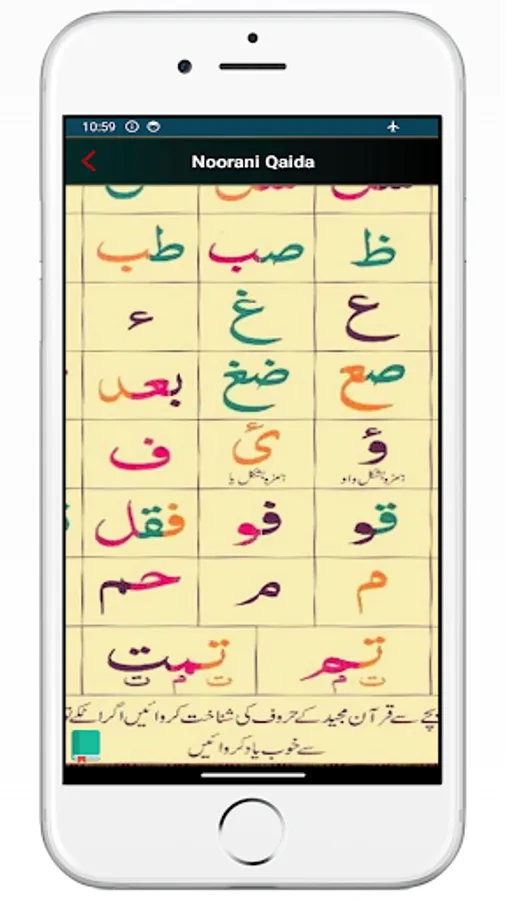 10:59
Noorani Qaida
ظ صب طب
ع غ ء
صع ضغ بعد
ؤ ئ ف
ہمزہ بشکل واو ہمزہ بشکل یا
قو فو فقل
م م حم
تم تمت
ت م ت م ت
بچے سے قرآن مجید کے حروف کی شناخت کروائیں اگر اٹکے تو
سے خوب یاد کروائیں